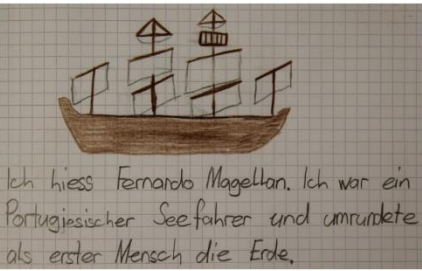 Ich hiess Fernando Magellan. Ich war ein
Portugiesischer Seefahrer und umrundete
als erster Mensch die Erde.